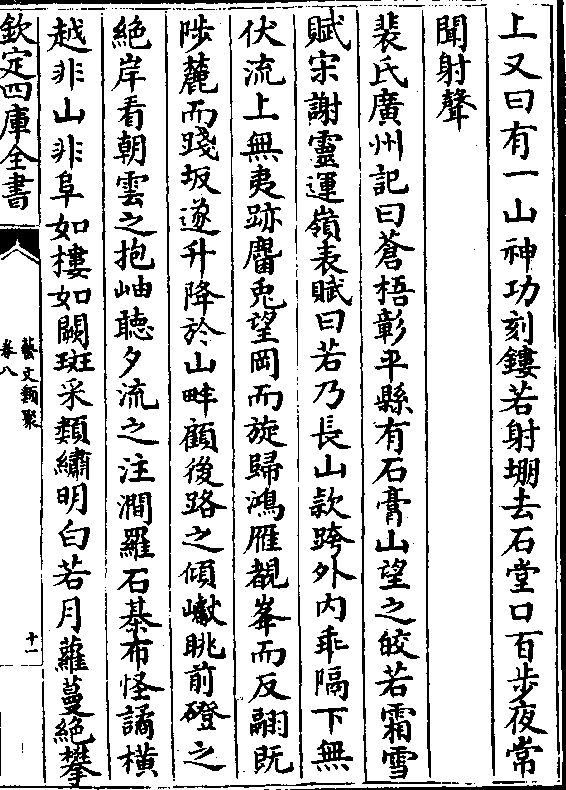 上又曰有一山神功刻鏤若射堋去石堂口百步夜常
聞射聲
裴氏廣州記曰蒼梧彰平縣有石膏山望之皎若霜雪
賦宋謝靈運嶺表賦曰若乃長山款跨外内乖隔下無
伏流上無夷跡麏兎望岡而旋歸鴻雁覩峯而反翮既
陟麓而踐坂遂升降於山畔顧後路之傾巘眺前磴之
絶岸看朝雲之抱岫聽夕流之注澗羅石棊布怪譎橫
越非山非阜如樓如闕斑采類繡明白若月蘿蔓絶攀
欽定四庫全書
藝文類聚
卷八
十一